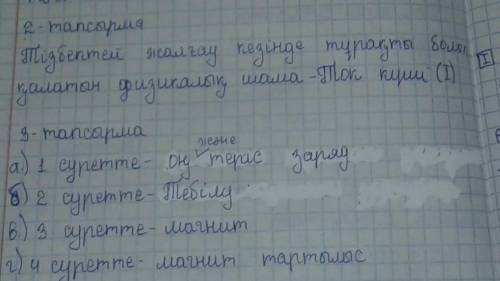 2-тапсырма
Тізбектей жалғау кезінде тұрақты болып
қалатын физикалық шама - Ток күші (I)
3-тапсырма
а) 1 суретте - оң және теріс заряд
б) 2 суретте - Тебілу
в) 3 суретте - магнит
г) 4 суретте - магнит тартылыс
I